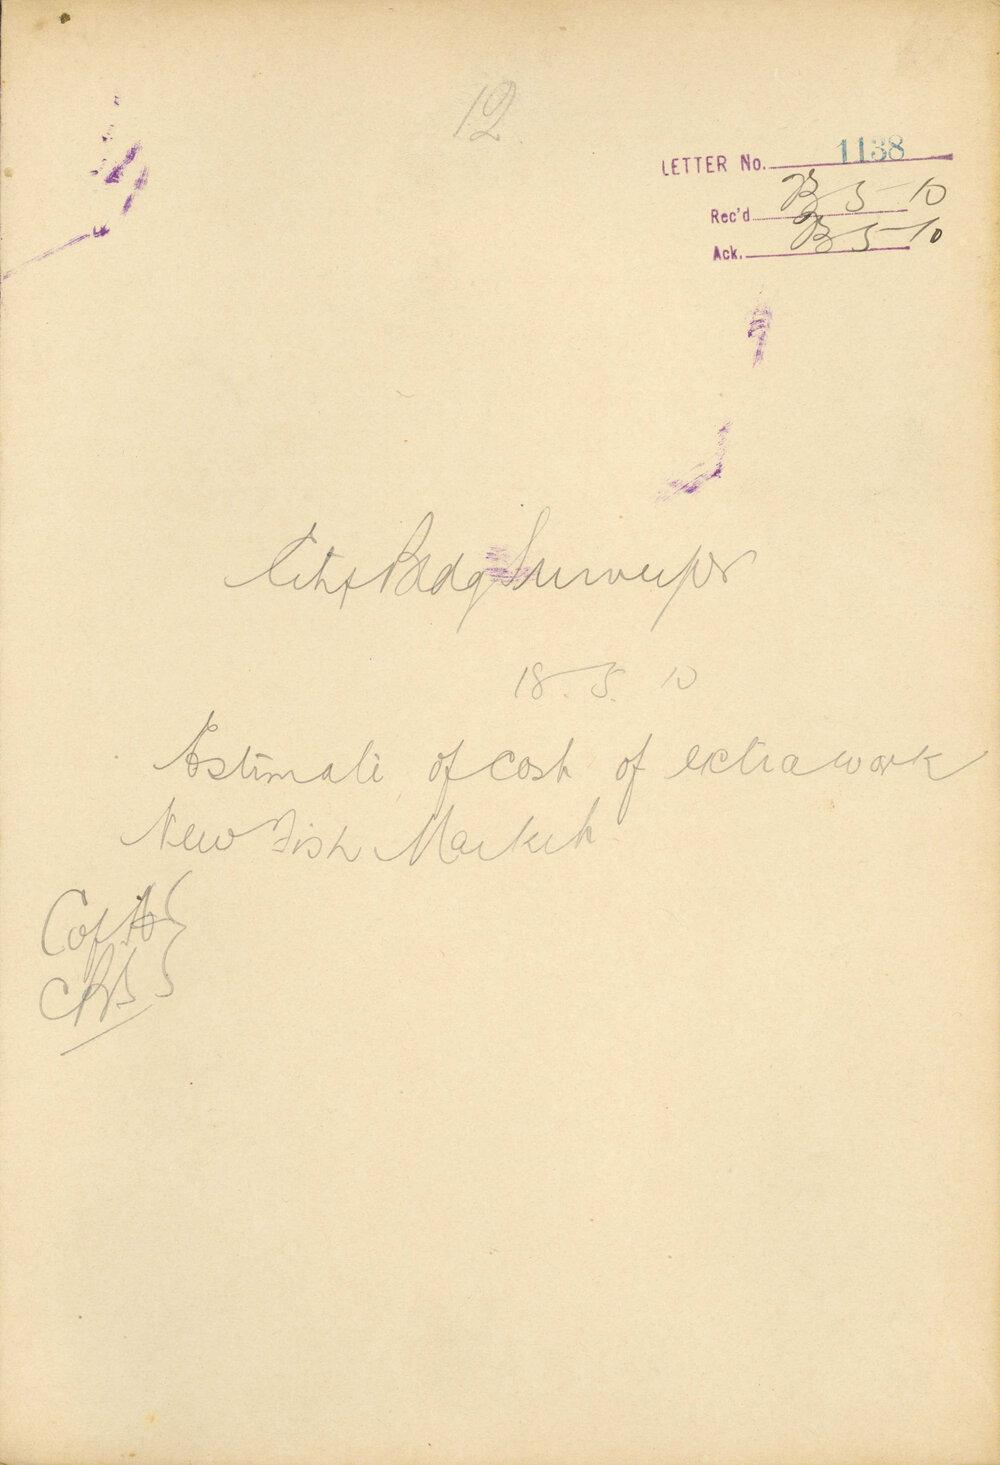 12
LETTER No. 1138
Rec'd 5 10
Ack. 5 10
City Bldg Surveyor
18. 5. 10
Estimate of cost of extra work
New Fish Market